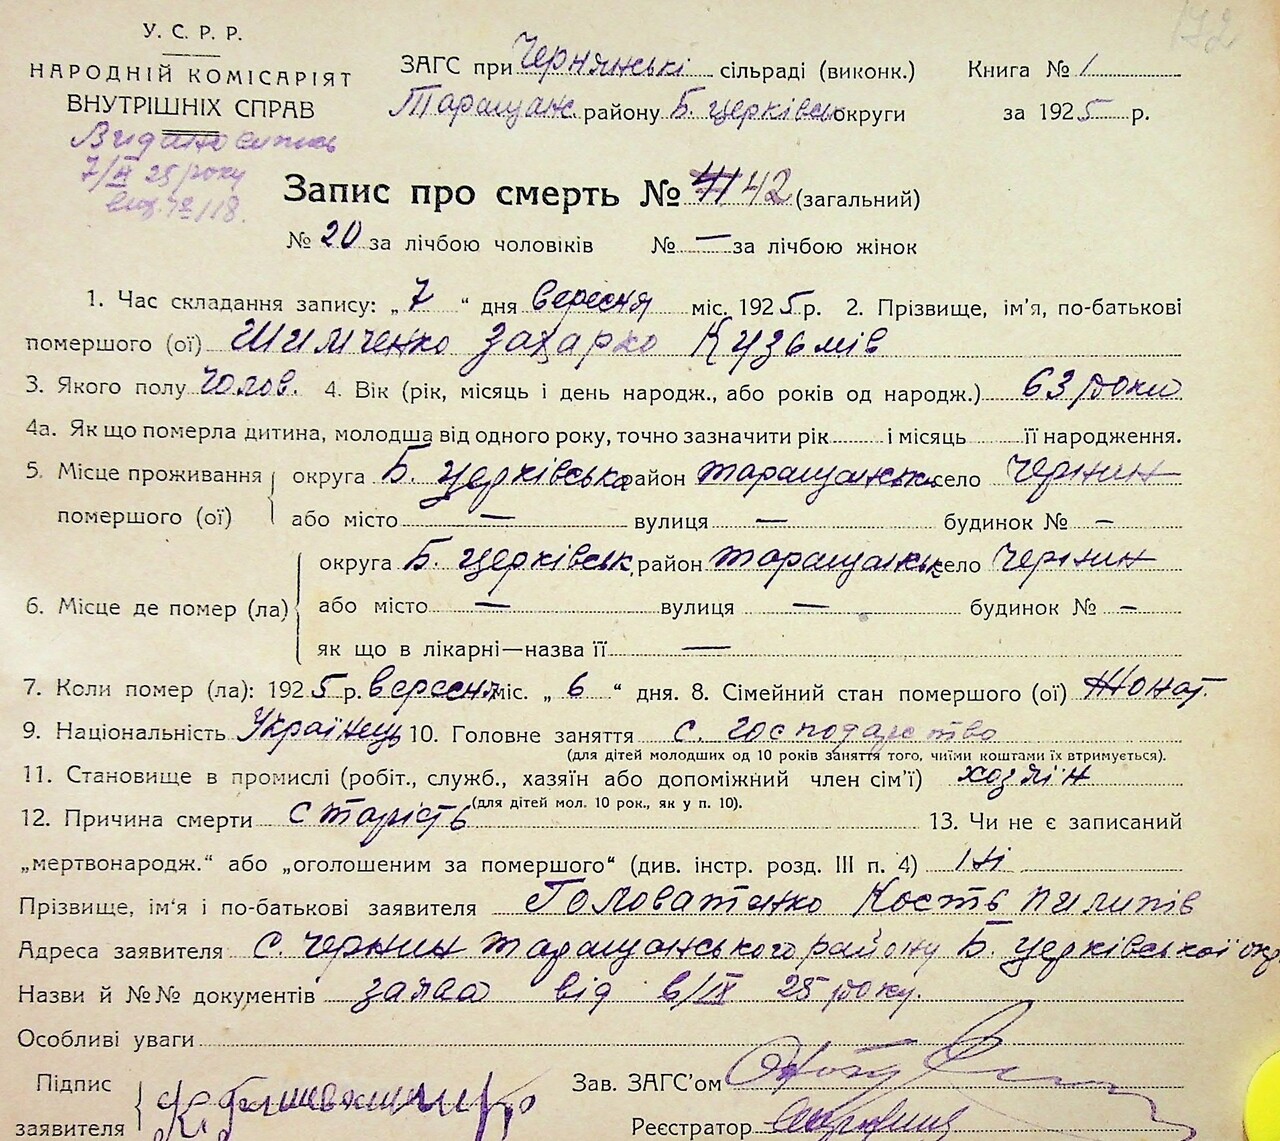 У. С. Р. Р.
НАРОДНІЙ КОМІСАРІЯТ
ВНУТРІШНІХ СПРАВ
Видано випись
7/IX 25 року
192
ЗАГС при Чернянські сільраді (виконк.) Книга № 1
Таращан. району Б. церківськ округи за 1925 р.
Запис про смерть № 41 42 (загальний)
№ 20 за лічбою чоловіків № — за лічбою жінок
1. Час складання запису: „ 7 “ дня вересня міс. 1925 р. 2. Прізвище, ім'я, по-батькові
помершого (ої) Шимченко Захарко Кузьмів
3. Якого полу Чолов. 4. Вік (рік, місяць і день народж., або років од народж.) 63 роки
4а. Як що померла дитина, молодша від одного року, точно зазначити рік і місяць її народження.
5. Місце проживання округа Б. Церківська район таращанськ село Чернин
помершого (ої) або місто — вулиця — будинок № —
округа Б. церківськ район таращанськ село Чернин
6. Місце де помер (ла) або місто — вулиця — будинок № —
як що в лікарні—назва її —
7. Коли помер (ла): 1925 р. вересня міс. „ 6 “ дня. 8. Сімейний стан помершого (ої) жонат.
9. Національність Українець 10. Головне заняття с. господарство
(для дітей молодших од 10 років заняття того, чиїми коштами їх втримується).
11. Становище в промислі (робіт., служб., хазяїн або допоміжний член сім'ї) хозяїн
(для дітей мол. 10 рок., як у п. 10).
12. Причина смерти старість 13. Чи не є записаний
„мертвонародж.“ або „оголошеним за помершого“ (див. інстр. розд. III п. 4) ні
Прізвище, ім'я і по-батькові заявителя Головатенко Кость пилипів
Адреса заявителя с. Чернин таращанського району Б. церківської окр
Назви й №№ документів заява від 6/IX 25 року.
Особливі уваги
Підпис
заявителя
Зав. ЗАГС'ом
Реєстратор